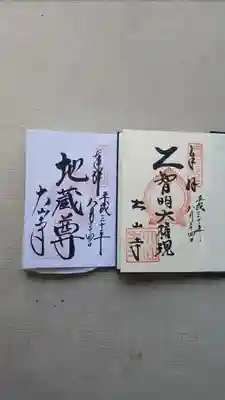 奉拝
平成三十年
八月十四日
地蔵尊
大山寺
奉拝
平成三十年
八月十四日
智明大権現
大山寺